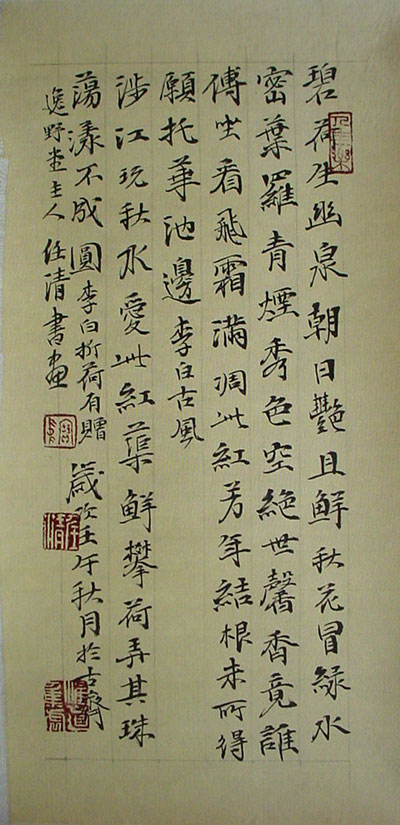 碧荷生幽泉朝日艷且鮮秋花冒綠水
密葉羅青煙秀色空絕世馨香竟誰
傳坐看飛霜滿凋此紅芳年結根未所得
願托華池邊李白古風
涉江玩秋水愛此紅蕖鮮攀荷弄其珠
蕩漾不成圓李白折荷有贈歲次壬午秋月於古齊
逸野堂主人任清書畫